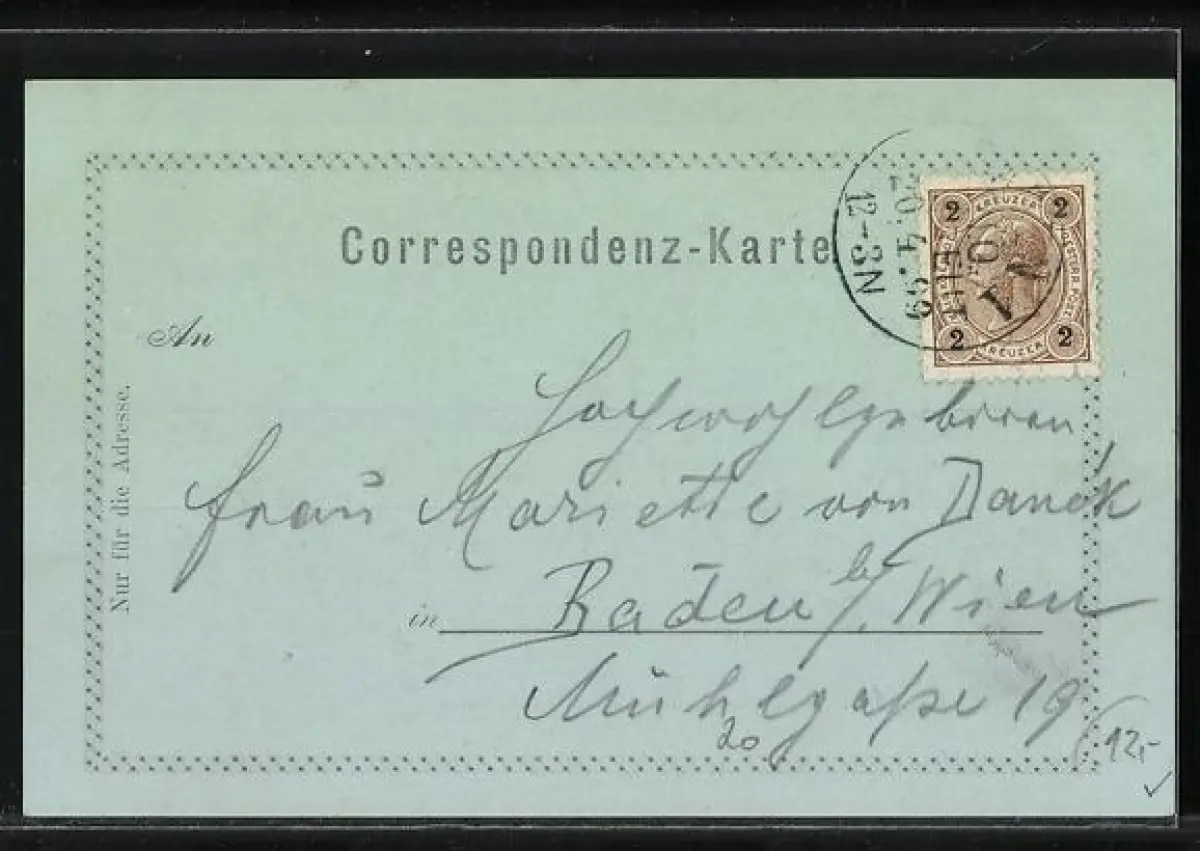 Correspondenz-Karte
12-3N
2 KREUZER 2
2 KREUZER 2
An
Nur für die Adresse.
Hochwohlgeboren
Frau Mariette von
in Baden b/ Wien
Mühlgaße 19
20
12,-